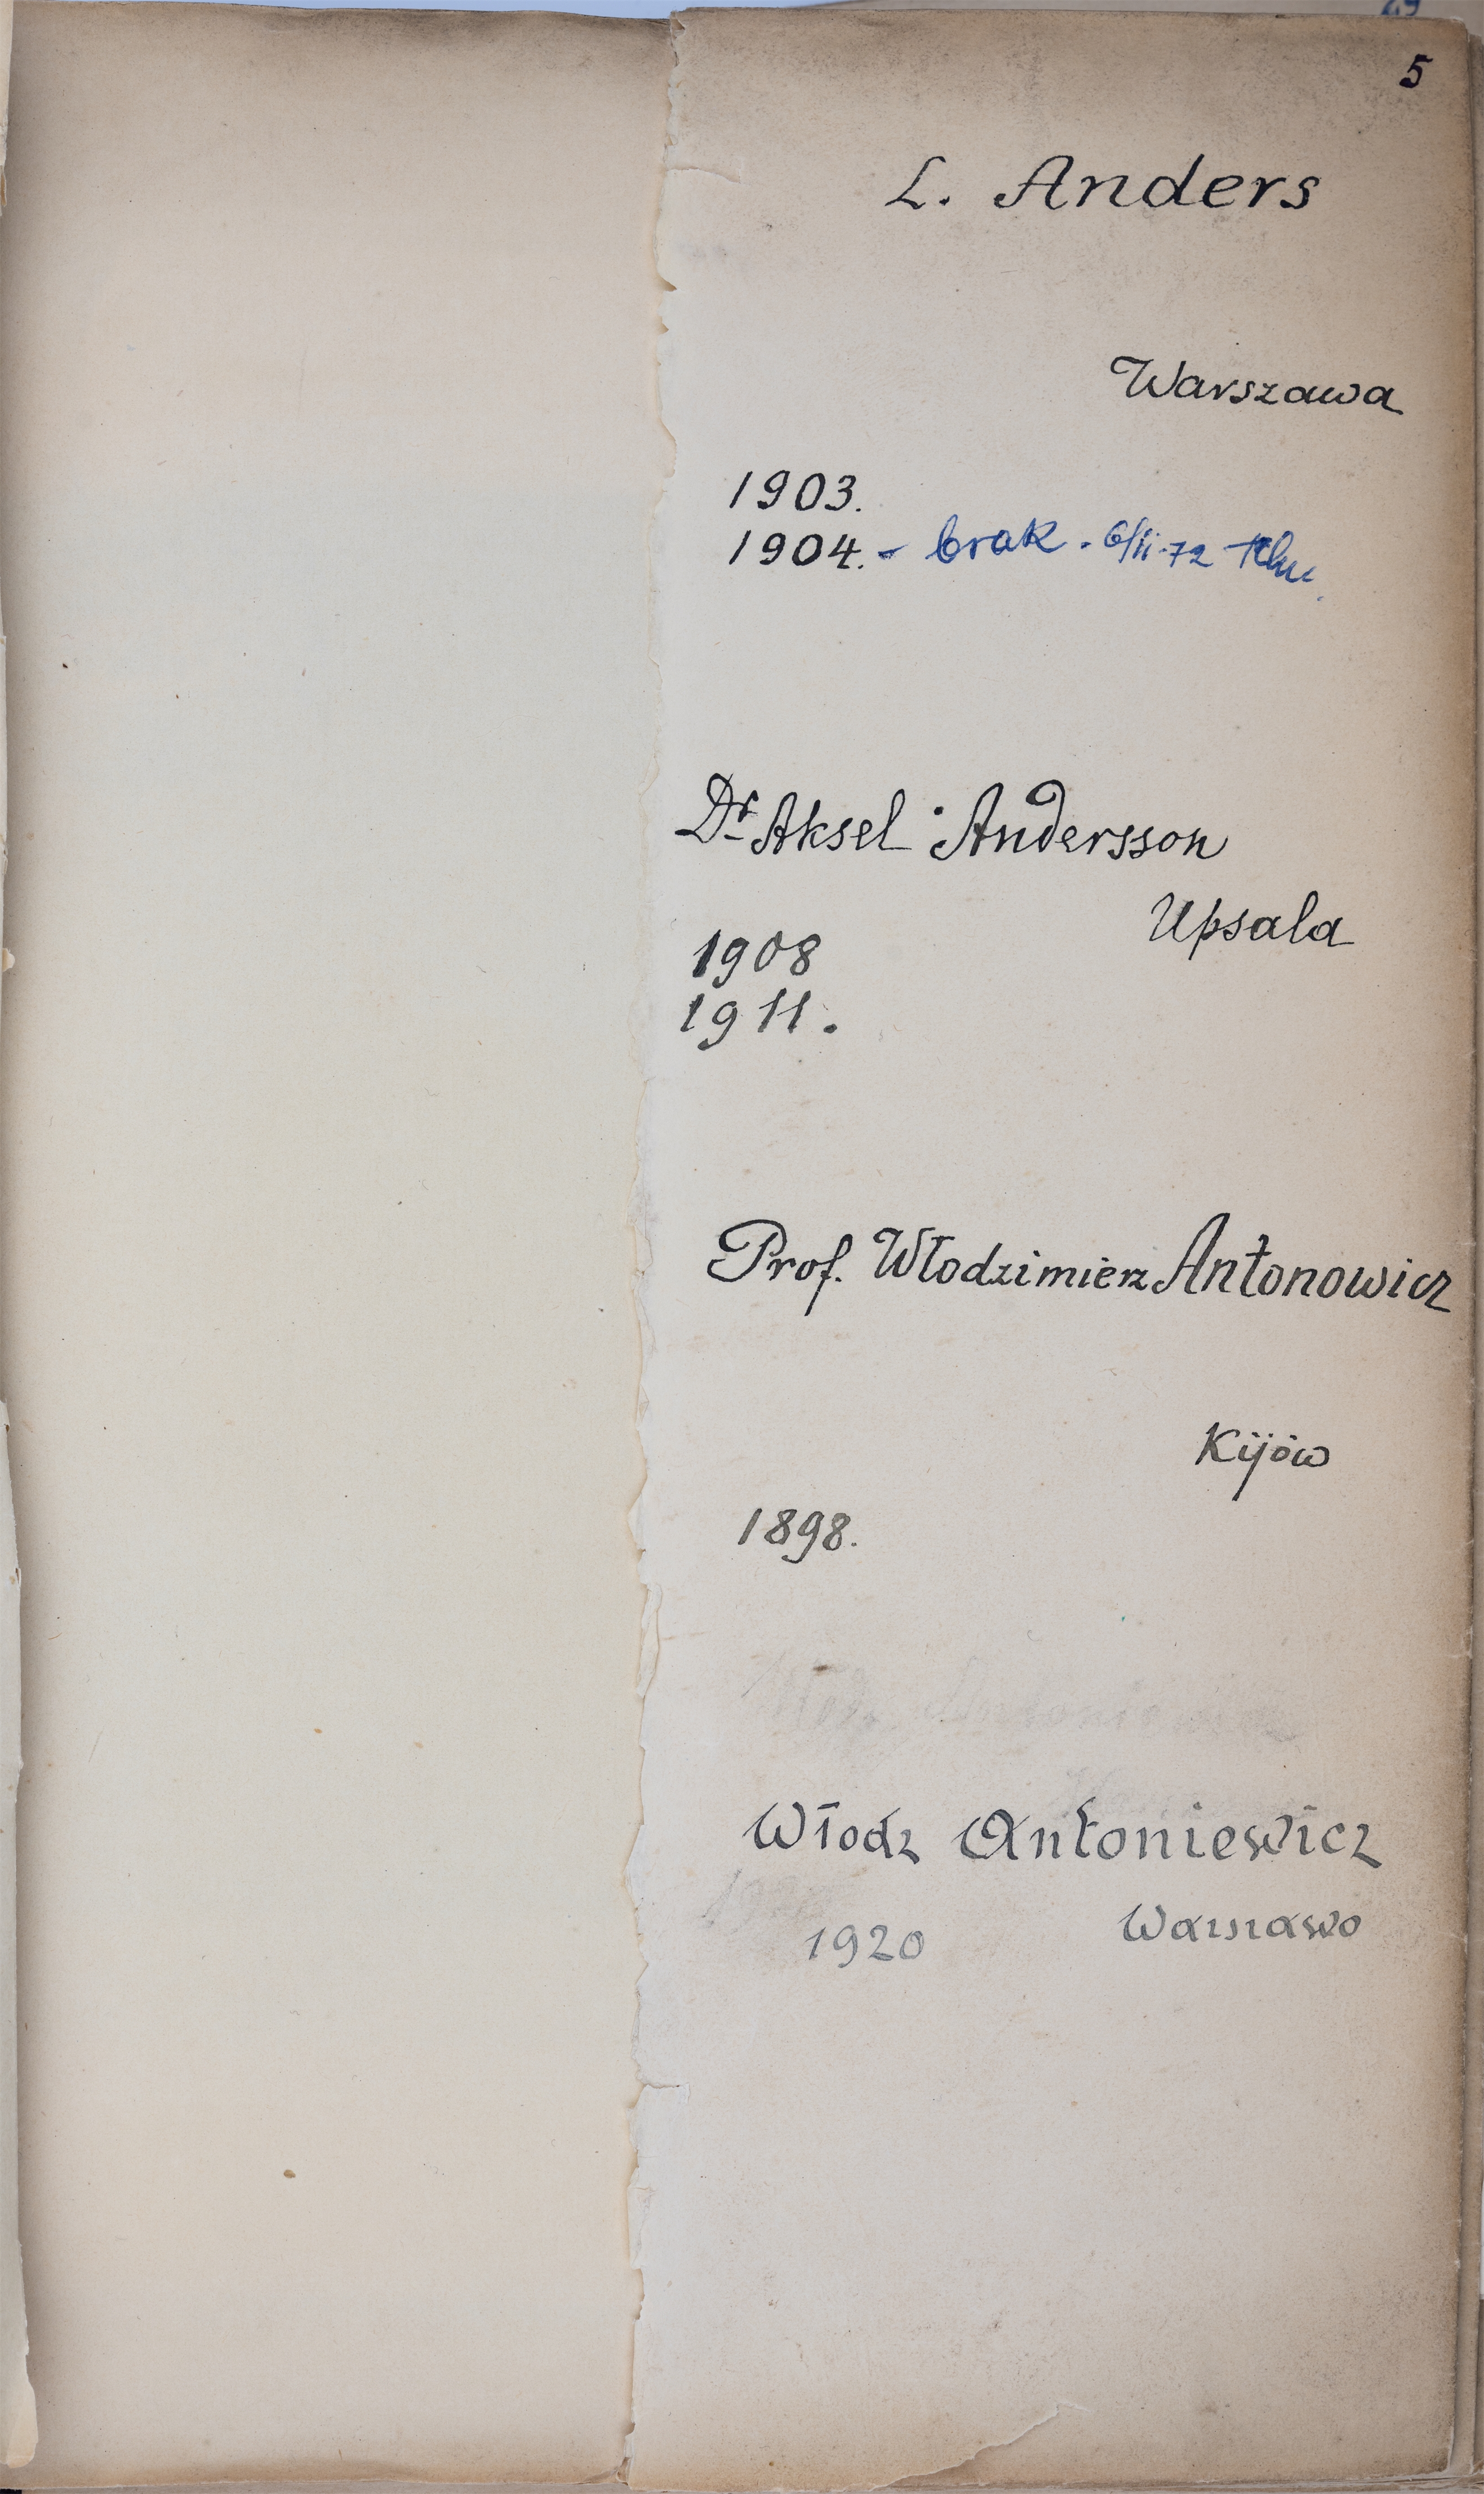 5
L. Anders
Warszawa
1903.
1904. - brak. 6/II-72
Dr Aksel Andersson
Upsala
1908
1911.
Prof. Włodzimierz Antonowicz
Kijów
1898.
Włodz Antoniewicz
Warszawa
1920